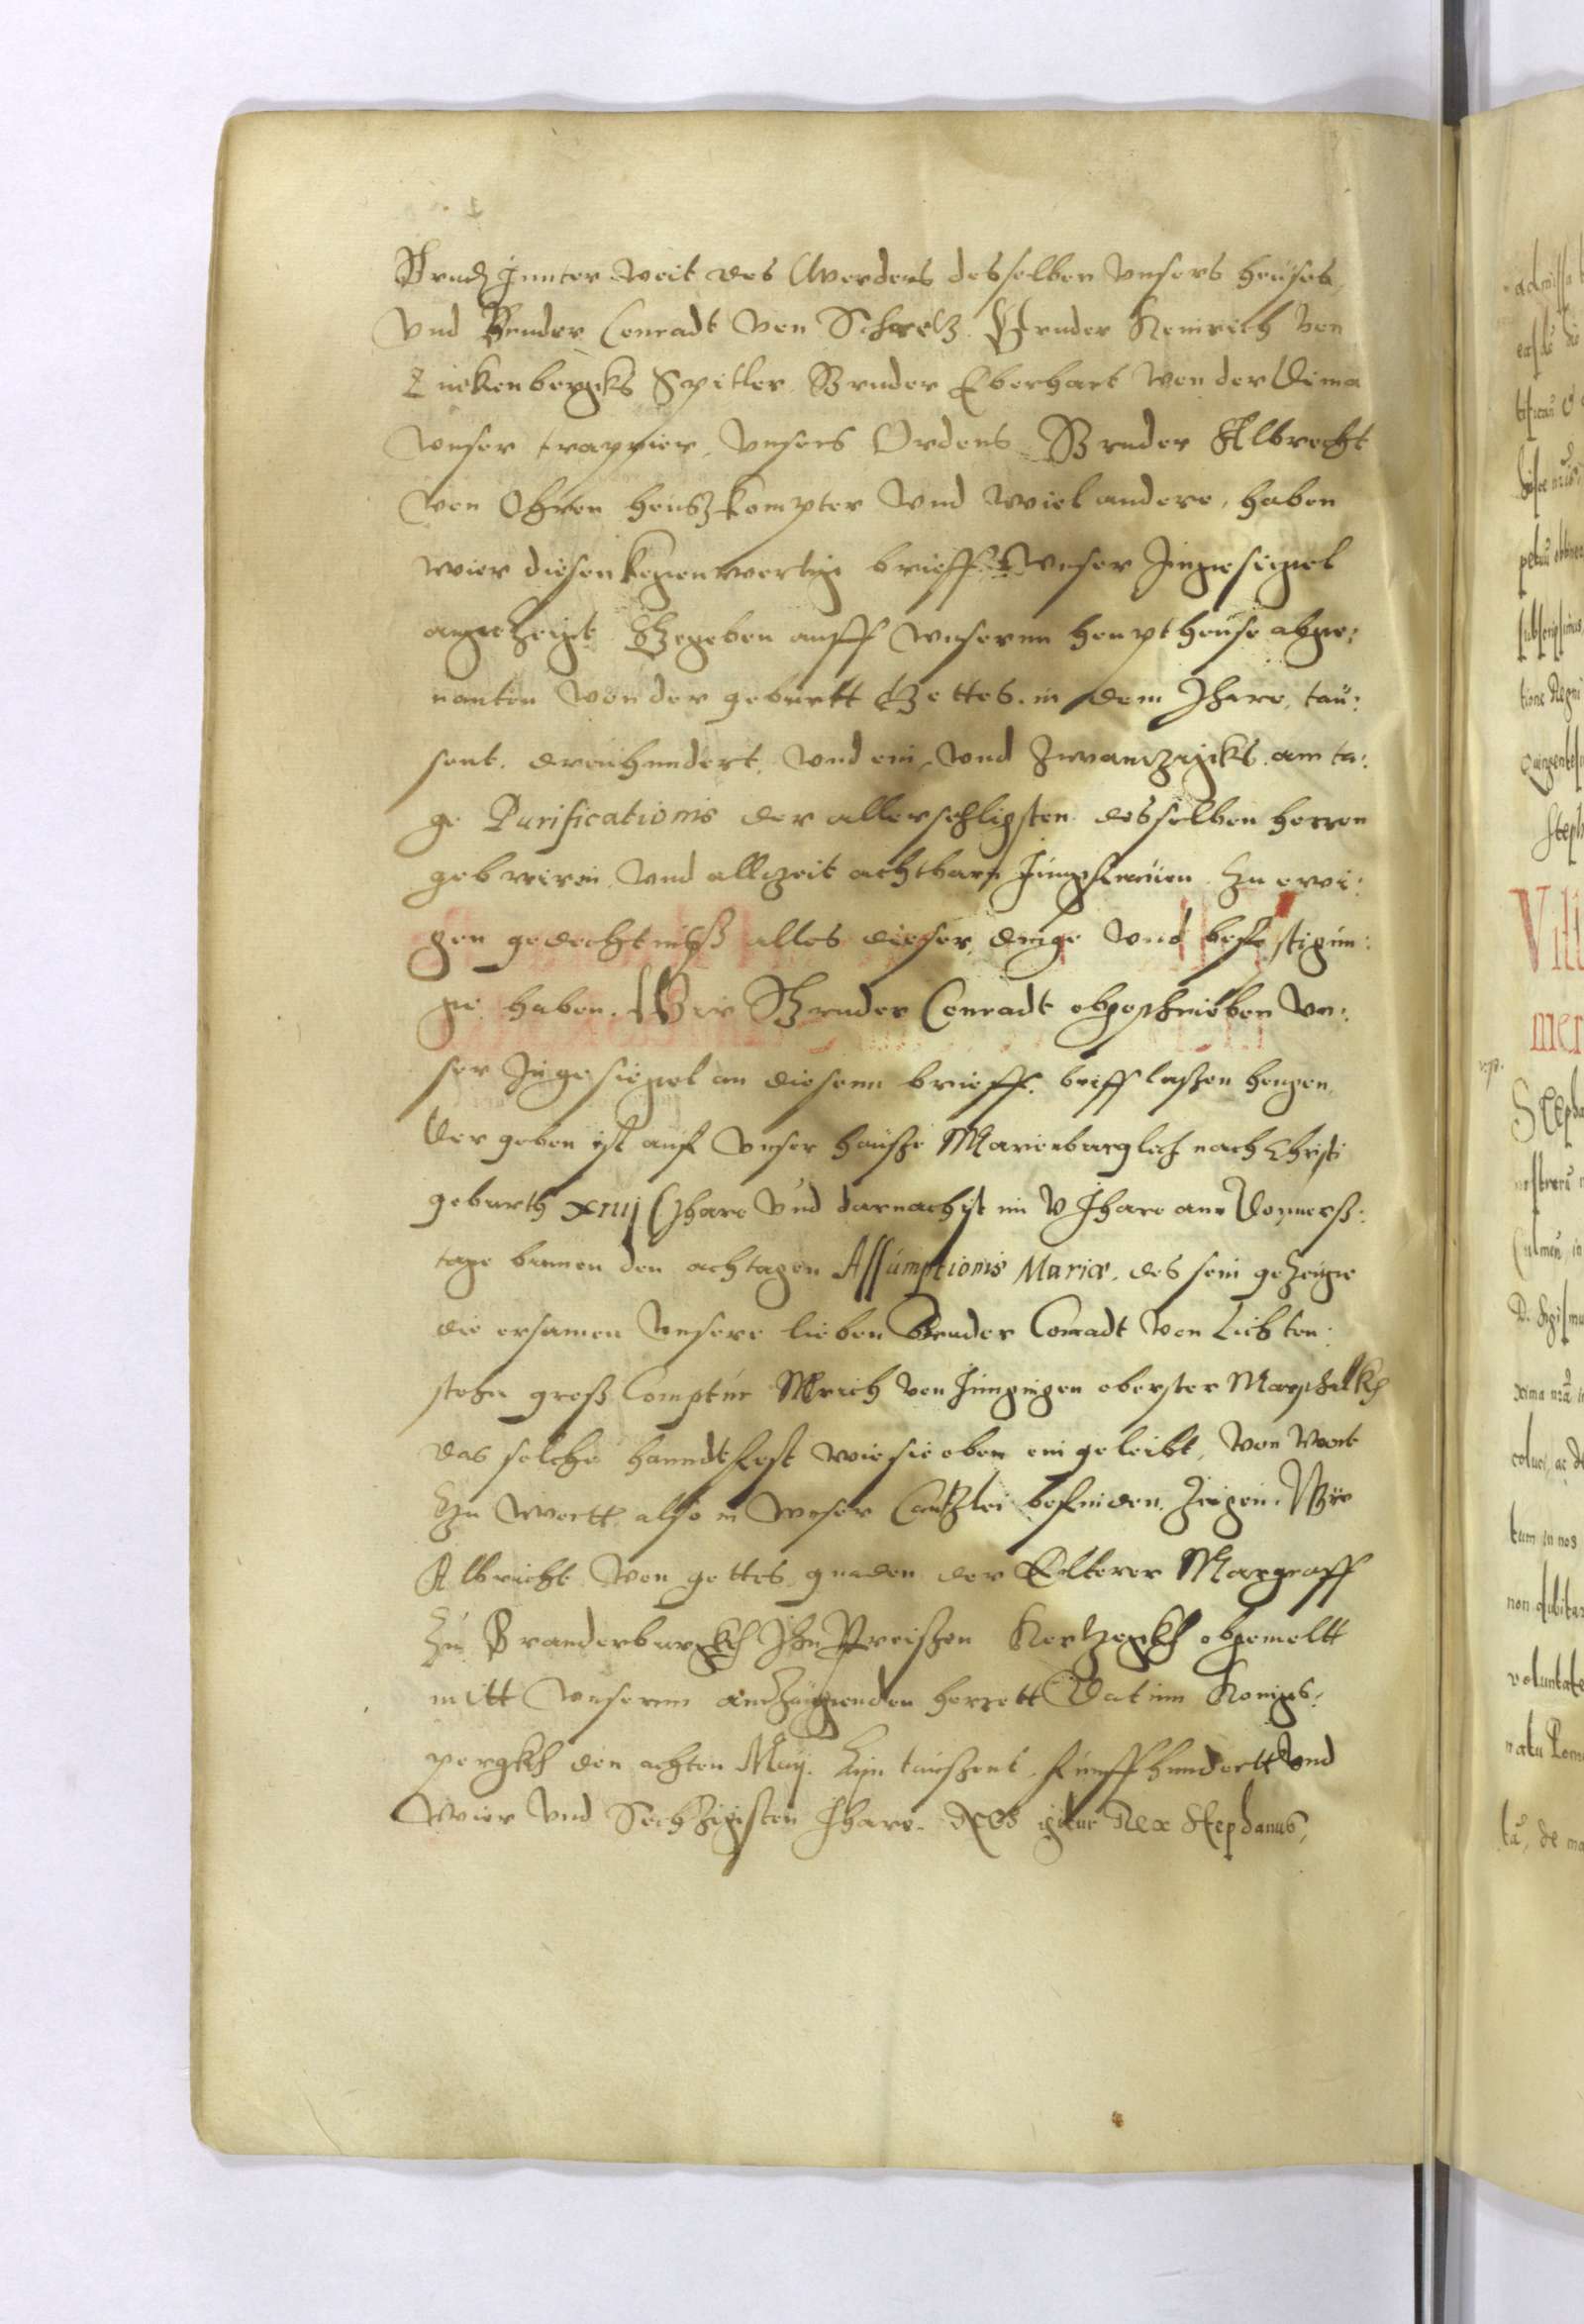 Brud Junter veit des Werders desselben vnsers heuses
Vnd Bruder Conradt von Schwelz Bruder Heinrich von
Linkenbergks Spitler Bruder Eberhart von der Dima
vnser trappier, vnsers Ordens Bruder Albrecht
von Ohren heuskompter vnd viel andere, haben
wier diesen kegenwertig brieff vnser Jngesigel
angezeigt Gegeben auff vnserm heuptheuse abge:
nanten von der geburtt Gottes. in dem Jhare, tau:
sent. dreihundert. vnd ein vnd zwanzigks. am ta:
ge Purificationis der allersehligsten desselben herren
gebererin vnd allzeit achtbarn Jungfrauen. Zu ewi:
gen gedechtniß alles dieser dinge vnd befestigun:
ge haben. Wir Bruder Conradt obgeschrieben vn:
ser Jngesiegel an diesenn brieff. briff laßen hengen
Der geben ist auf vnser hauße Marienburglich nach Christi
geburth xiiij Jhare vnd darnachst im V Jhare ann Donnerß:
tage binnen den achtagen Assumptionis Mariæ. des sein gezeuge
die ersamen vnsere lieben Bruder Conradt von Lichten:
stehn groß Comptur Vlrich von Jungingen oberster Marschalkh
das solche hanndtfest wie sie oben eingeleibt, von Wort
Zu Wortt also in vnser Cantzlei befinden. Zeigen. Wir
Albricht von gottes gnaden der Elterer Margraff
Zu Branderburgkh Jhn Preißen Hertzogkh obgemeltt
mitt vnserm anhengenden Datum Konigs:
pergkh den achten Maij. Ein taußent funffhundertt vnd
Vier vnd Sechzigsten Jhare. Nos igitur Rex Stephanus,